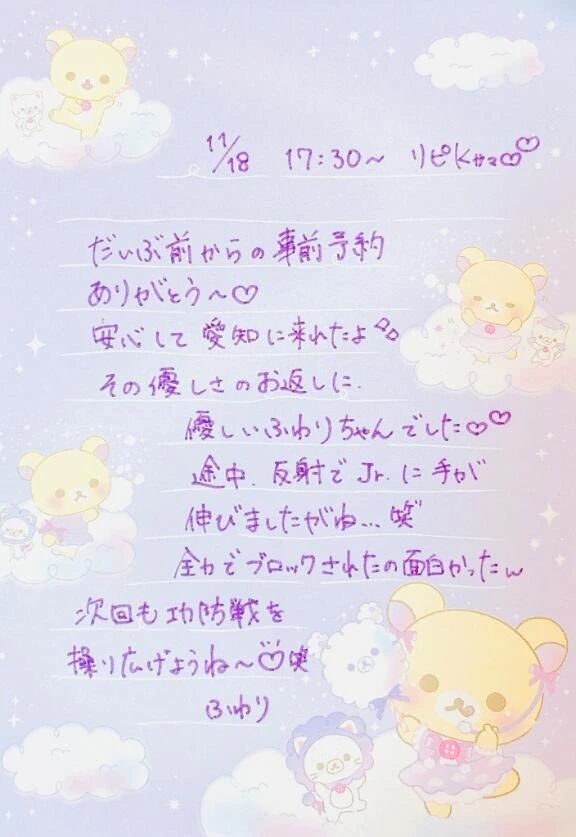 11/18 17:30～ リピKサマ♡♡
だいぶ前からの事前予約
ありがとう～♡
安心して愛知に来れたよ
その優しさのお返しに.
優しいふわりちゃんでした♡♡
途中.反射でJr.に手が
伸びましたがね...笑
全力でブロックされたの面白かったw
次回も功防戦を
操り広げようね～♡笑
ふわり